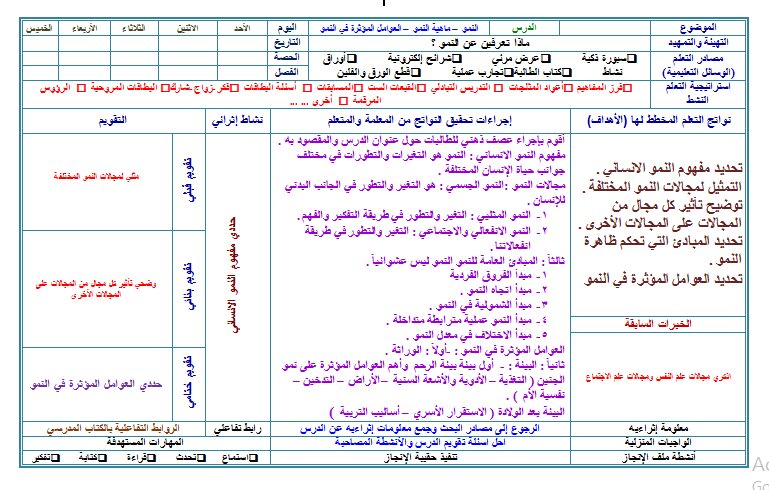 الموضوع
الدرس
النمو – ماهية النمو – العوامل المؤثرة في النمو
اليوم
الأحد
الاثنين
الثلاثاء
الأربعاء
الخميس
التهيئة والتمهيد
ماذا تعرفين عن النمو ؟
التاريخ
مصادر التعلم
(الوسائل التعليمية)
سبورة ذكية
عرض مرئي
شرائح إلكترونية
أوراق
نشاط
كتاب الطالبة
تجارب عملية
قطع الورق والفلين
الحصة
الفصل
استراتيجية التعلم
النشط
فرز المفاهيم
أعواد المثلجات
التدريس التبادلي
القبعات الست
المسابقات
أسئلة البطاقات
فكر-زواج-شارك
البطاقات المروحية
الرؤوس
المرقمة
أخرى ... ...
نواتج التعلم المخطط لها (الأهداف)
إجراءات تحقيق النواتج من المعلمة والمتعلم
نشاط إثرائي
التقويم
تحديد مفهوم النمو الانساني .
التمثيل لمجالات النمو المختلفة .
توضيح تأثير كل مجال من
المجالات على المجالات الأخرى .
تحديد المبادئ التي تحكم ظاهرة
النمو .
تحديد العوامل المؤثرة في النمو
الخبرات السابقة
اذكري مجالات علم النفس ومجالات علم الاجتماع
أقوم بإجراء عصف ذهني للطالبات حول عنوان الدرس والمقصود به .
مفهوم النمو الانساني : النمو هو التغيرات والتطورات في مختلف
جوانب حياة الإنسان المختلفة .
مجالات النمو :النمو الجسمي : هو التغير والتطور في الجانب البدني
للإنسان .
١- النمو العقلي : التغير والتطور في طريقة التفكير والفهم .
٢- النمو الانفعالي والاجتماعي : التغير والتطور في طريقة
انفعالاتنا .
ثالثاً : المبادئ العامة للنمو النمو ليس عشوائياً .
١- مبدأ الفروق الفردية
٢- مبدأ اتجاه النمو .
٣- مبدأ الشمولية في النمو .
٤- مبدأ النمو عملية مترابطة متداخلة .
٥- مبدأ الاختلاف في معدل النمو .
العوامل المؤثرة في النمو :- أولاً : الوراثة .
ثانياً : البيئة :- أول بيئة بيئة الرحم وأهم العوامل المؤثرة على نمو
الجنين ( التغذية – الأدوية والأشعة السينية – الأراض – التدخين –
نفسية الأم ) .
البيئة بعد الولادة ( الاستقرار الأسري – أساليب التربية )
حددي مفهوم النمو الانساني
تقويم قبلي
مثلي لمجالات النمو المختلفة
تقويم بنائي
وضحي تأثير كل مجال من المجالات على
المجالات الأخرى
تقويم ختامي
حددي العوامل المؤثرة في النمو
معلومة إثرائيه
الرجوع إلى مصادر البحث وجمع معلومات إثرائيه عن الدرس
رابط تفاعلي
الروابط التفاعلية بالكتاب المدرسي
الواجبات المنزلية
احل اسئلة تقويم الدرس والأنشطة المصاحبة
المهارات المستهدفة
أنشطة ملف الإنجاز
تنفيذ حقيبة الإنجاز
استماع
تحدث
قراءة
كتابة
تفكير